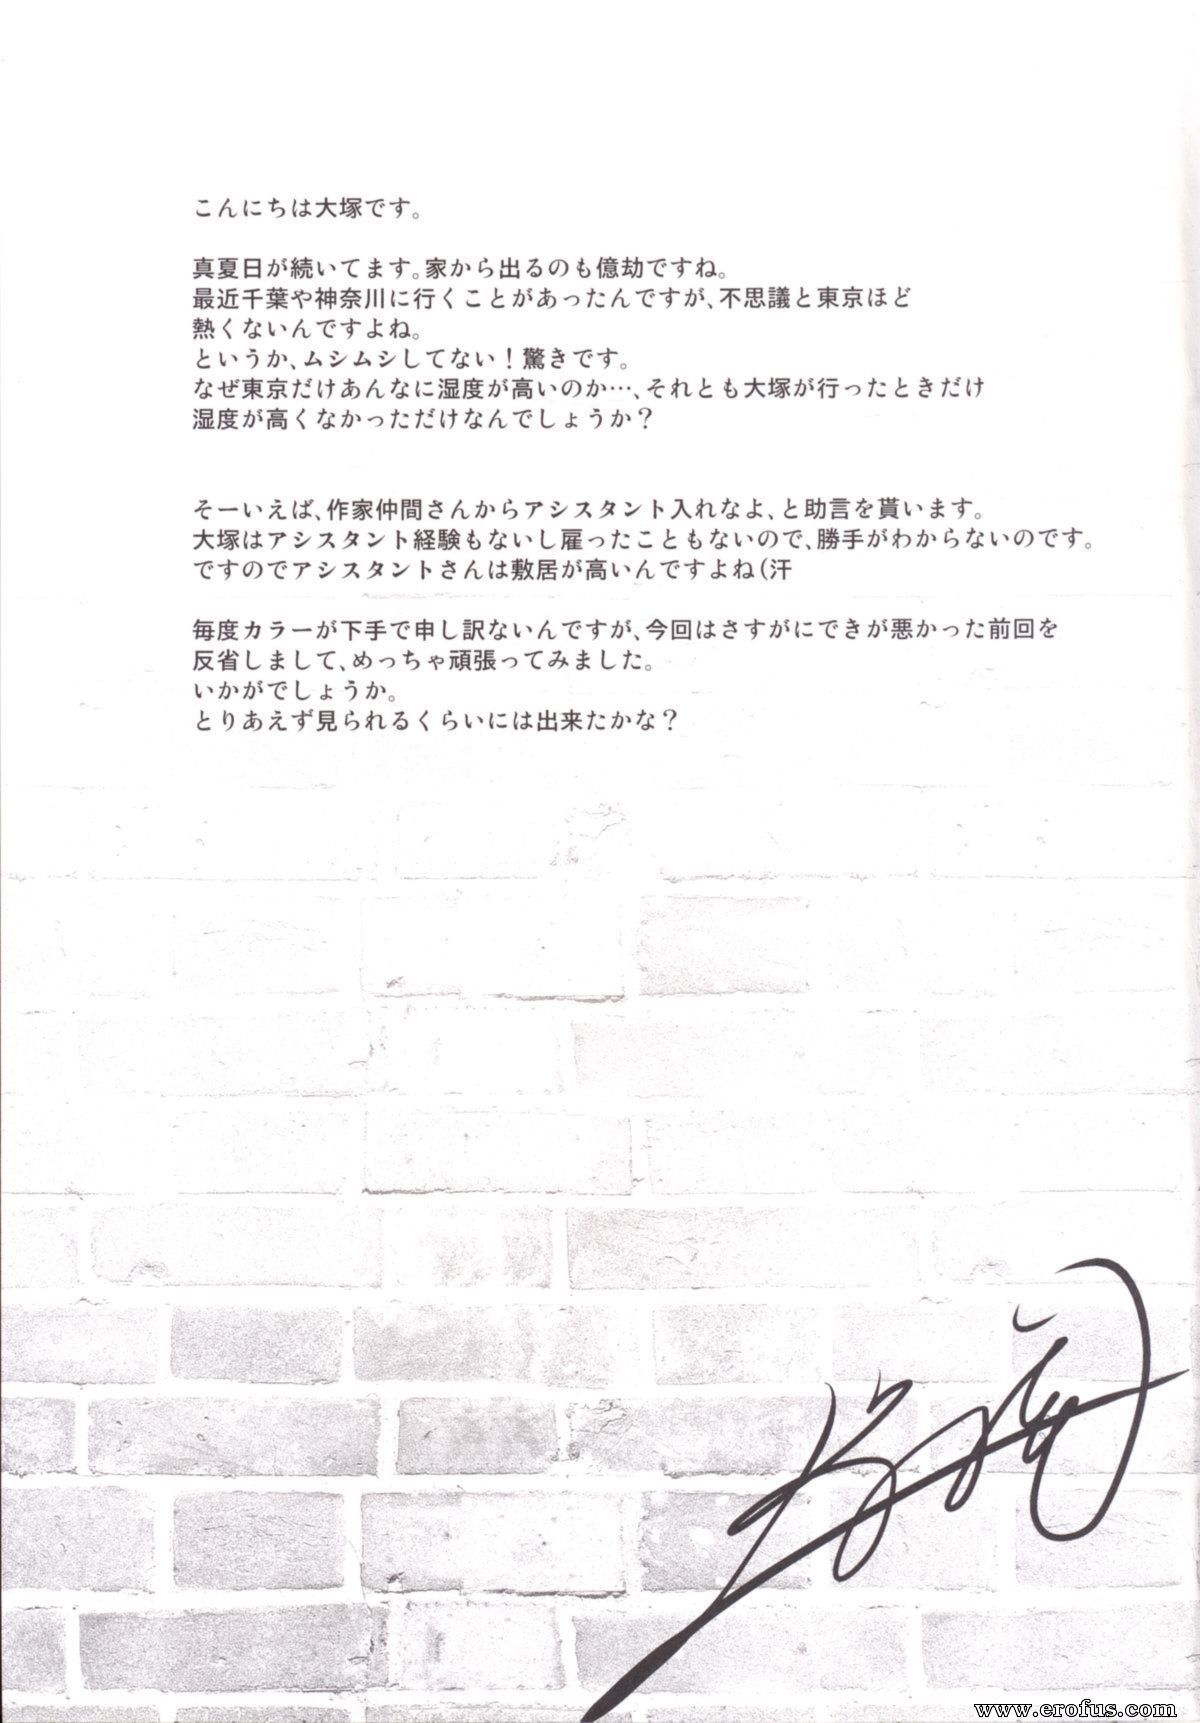 こんにちは大塚です。
真夏日が続いてます。家から出るのも億劫ですね。
最近千葉や神奈川に行くことがあったんですが、不思議と東京ほど
熱くないんですよね。
というか、ムシムシしてない！驚きです。
なぜ東京だけあんなに湿度が高いのか…、それとも大塚が行ったときだけ
湿度が高くなかっただけなんでしょうか？
そーいえば、作家仲間さんからアシスタント入れなよ、と助言を貰います。
大塚はアシスタント経験もないし雇ったこともないので、勝手がわからないのです。
ですのでアシスタントさんは敷居が高いんですよね(汗
毎度カラーが下手で申し訳ないんですが、今回はさすがにできが悪かった前回を
反省しまして、めっちゃ頑張ってみました。
いかがでしょうか。
とりあえず見られるくらいには出来たかな？
www.erofus.com